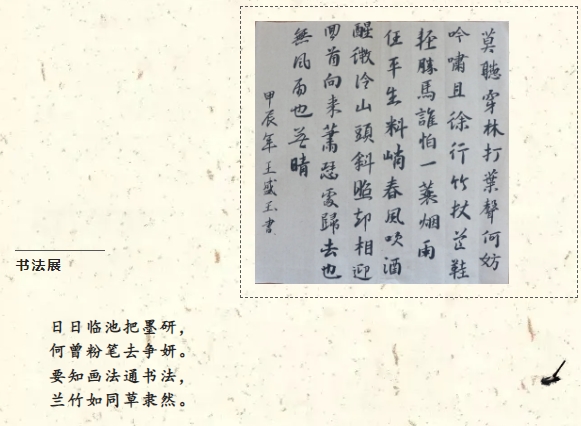 莫聽穿林打葉聲何妨
吟嘯且徐行竹杖芒鞋
輕勝馬誰怕一蓑烟雨
任平生料峭春風吹酒
醒微冷山頭斜照却相迎
回首向来蕭瑟處歸去也
無風雨也无晴
甲辰年王盛玉書
书法展
日日临池把墨研，
何曾粉笔去争妍。
要知画法通书法，
兰竹如同草隶然。